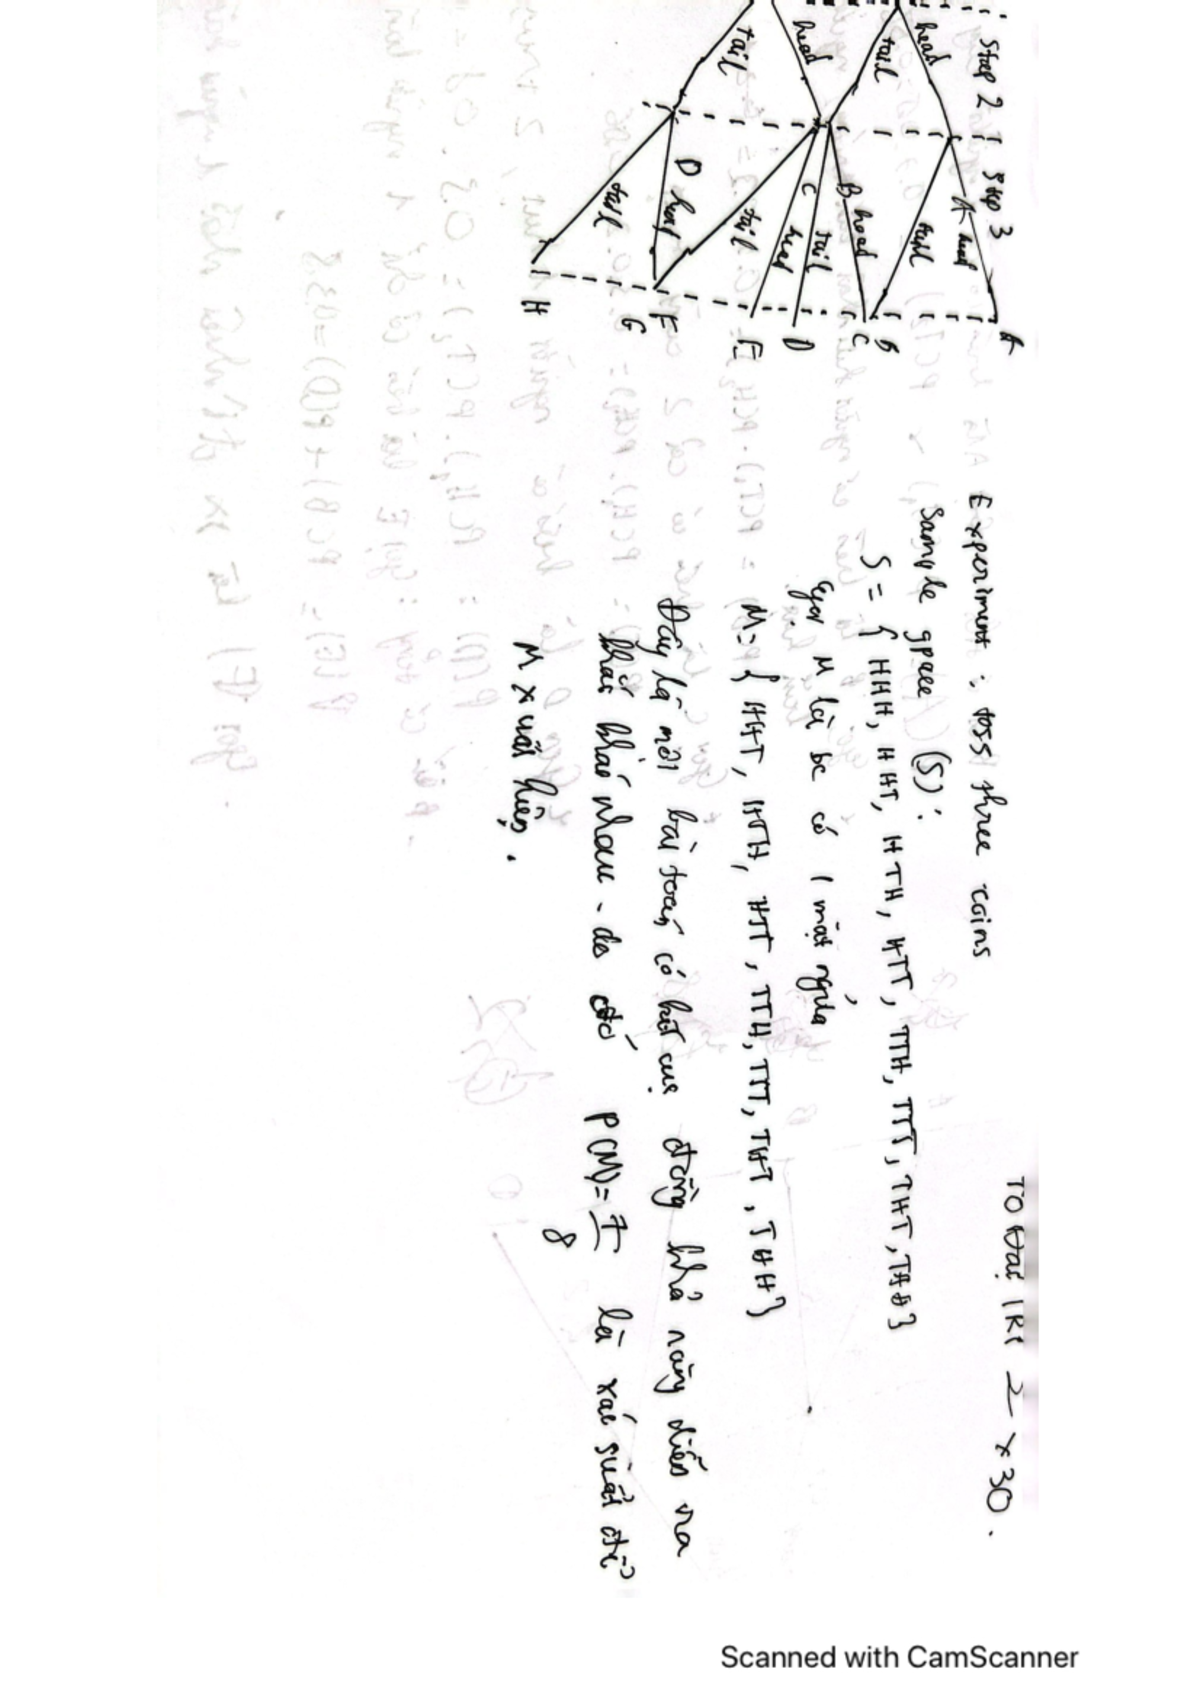 TO Đại IRI 2 x30.
Experiment : toss three coins
Sample gpace (S):
S = { HHH, HHT, HTH, HTT, TTH, TTT, THT, THH}
Gọi M là bc có 1 mặt ngửa
M= { HHT, HTH, HTT, TTH, TTT, THT, THH}
Đây là một bài toán có kết cục đồng khả năng diễn ra
khác nhau - do đó P(M) = 7/8 là xác suất để
M xuất hiện.
Step 2 Step 3
head
tail
head
tail
A head
tail
B head
tail
C
head
tail
D head
tail
A
B
C
D
E
F
G
H
Scanned with CamScanner